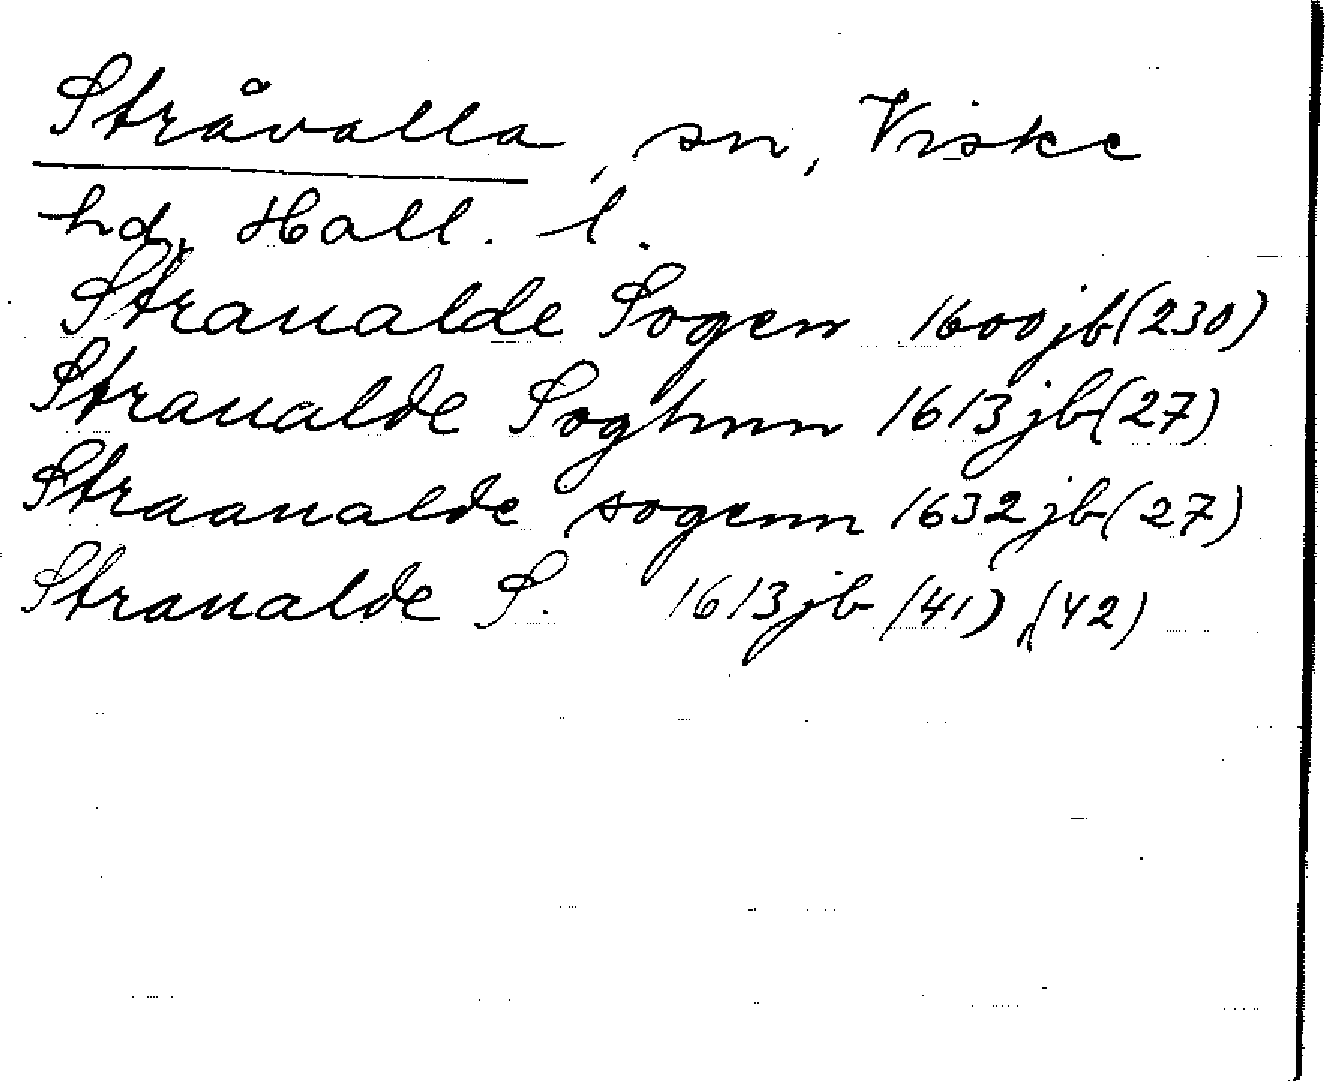 Stråvalla, sn, Viske
hd, Hall. l.
Straualde Sogen 1600 jb (230)
Straualde Soghnn 1613 jb (27)
Straaualde sogenn 1632 jb (27)
Straualde S. 1613 jb (41), (42)